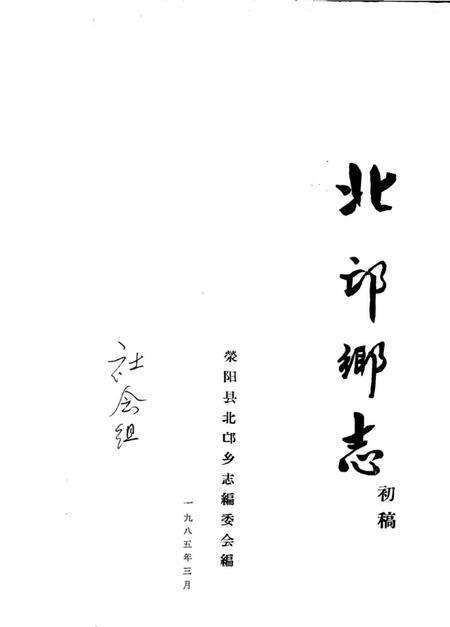 北邙鄉志
初稿
荥阳县北邙乡志編委会編
一九八五年三月
社会组